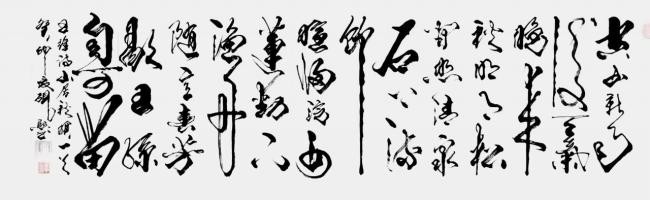 空山新雨
後天氣
晚来
秋明月松
間照清泉
石上流
竹
喧歸浣女
蓮動下
漁舟
随意春芳
歇王孫
自可留
王維詩山居秋暝一首